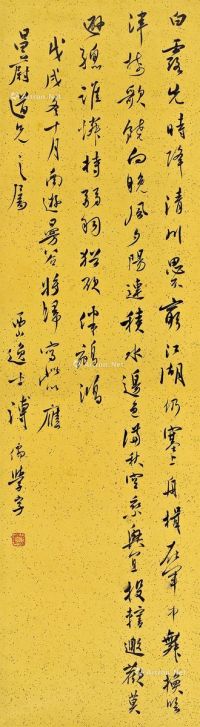 白露先時降清川思不窮江湖仍塞上舟楫在軍中舞換臨
津樹歌饒向晚風夕陽連積水邊色滿秋空乘興宜投轄邀歡莫
避驄誰憐持弱羽猶欲伴鵷鴻
戊戌冬十月南遊曼谷將歸寫此應
蔚道兄之屬
西山逸士溥儒學字